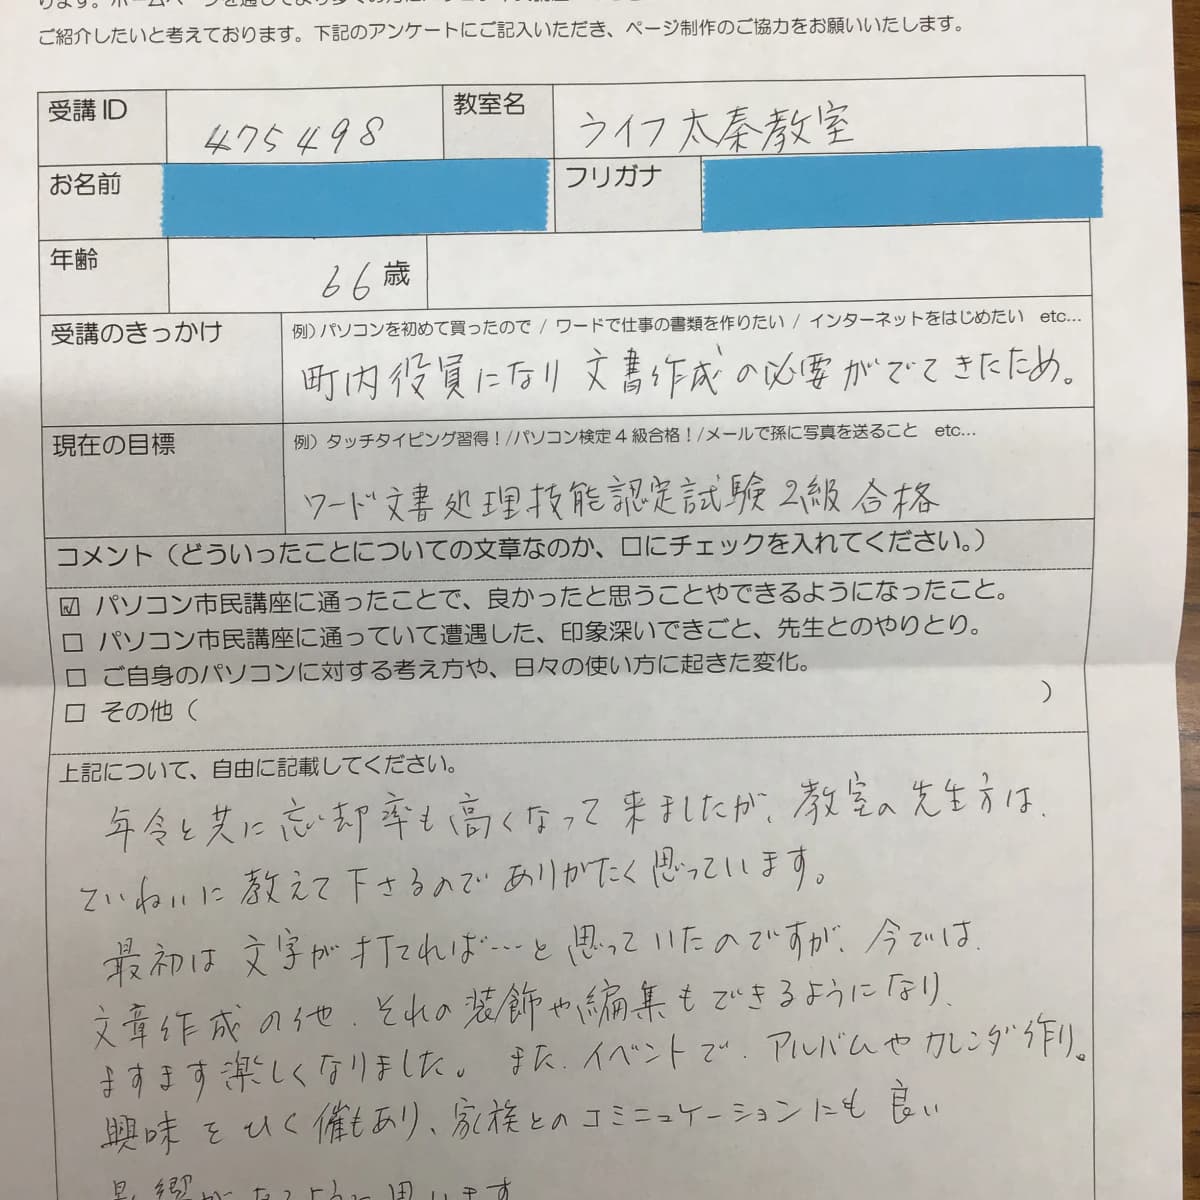 ご紹介したいと考えております。下記のアンケートにご記入いただき、ページ制作のご協力をお願いいたします。
受講ID 475498 教室名 ライフ太秦教室
お名前 フリガナ
年齢 66歳
受講のきっかけ 例）パソコンを初めて買ったので / ワードで仕事の書類を作りたい / インターネットをはじめたい etc...
町内役員になり文書作成の必要がでてきたため。
現在の目標 例）タッチタイピング習得！/パソコン検定4級合格！/メールで孫に写真を送ること etc...
ワード文書処理技能認定試験2級合格
コメント（どういったことについての文章なのか、口にチェックを入れてください。）
☑ パソコン市民講座に通ったことで、良かったと思うことやできるようになったこと。
□ パソコン市民講座に通っていて遭遇した、印象深いできごと、先生とのやりとり。
□ ご自身のパソコンに対する考え方や、日々の使い方に起きた変化。
□ その他（ ）
上記について、自由に記載してください。
年令と共に忘却率も高くなって来ましたが、教室の先生方は、
ていねいに教えて下さるのでありがたく思っています。
最初は文字が打てれば…と思っていたのですが、今では、
文章作成の他、それの装飾や編集もできるようになり、
ますます楽しくなりました。また、イベントで、アルバムやカレンダ作り。
興味をひく催もあり、家族とのコミニュケーションにも良い